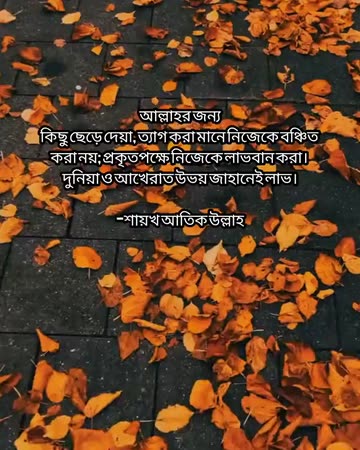 আল্লাহর জন্য
কিছু ছেড়ে দেয়া, ত্যাগ করা মানে নিজেকে বঞ্চিত
করা নয়; প্রকৃতপক্ষে নিজেকে লাভবান করা।
দুনিয়া ও আখেরাত উভয় জাহানেই লাভ।
-শায়খ আতিক উল্লাহ